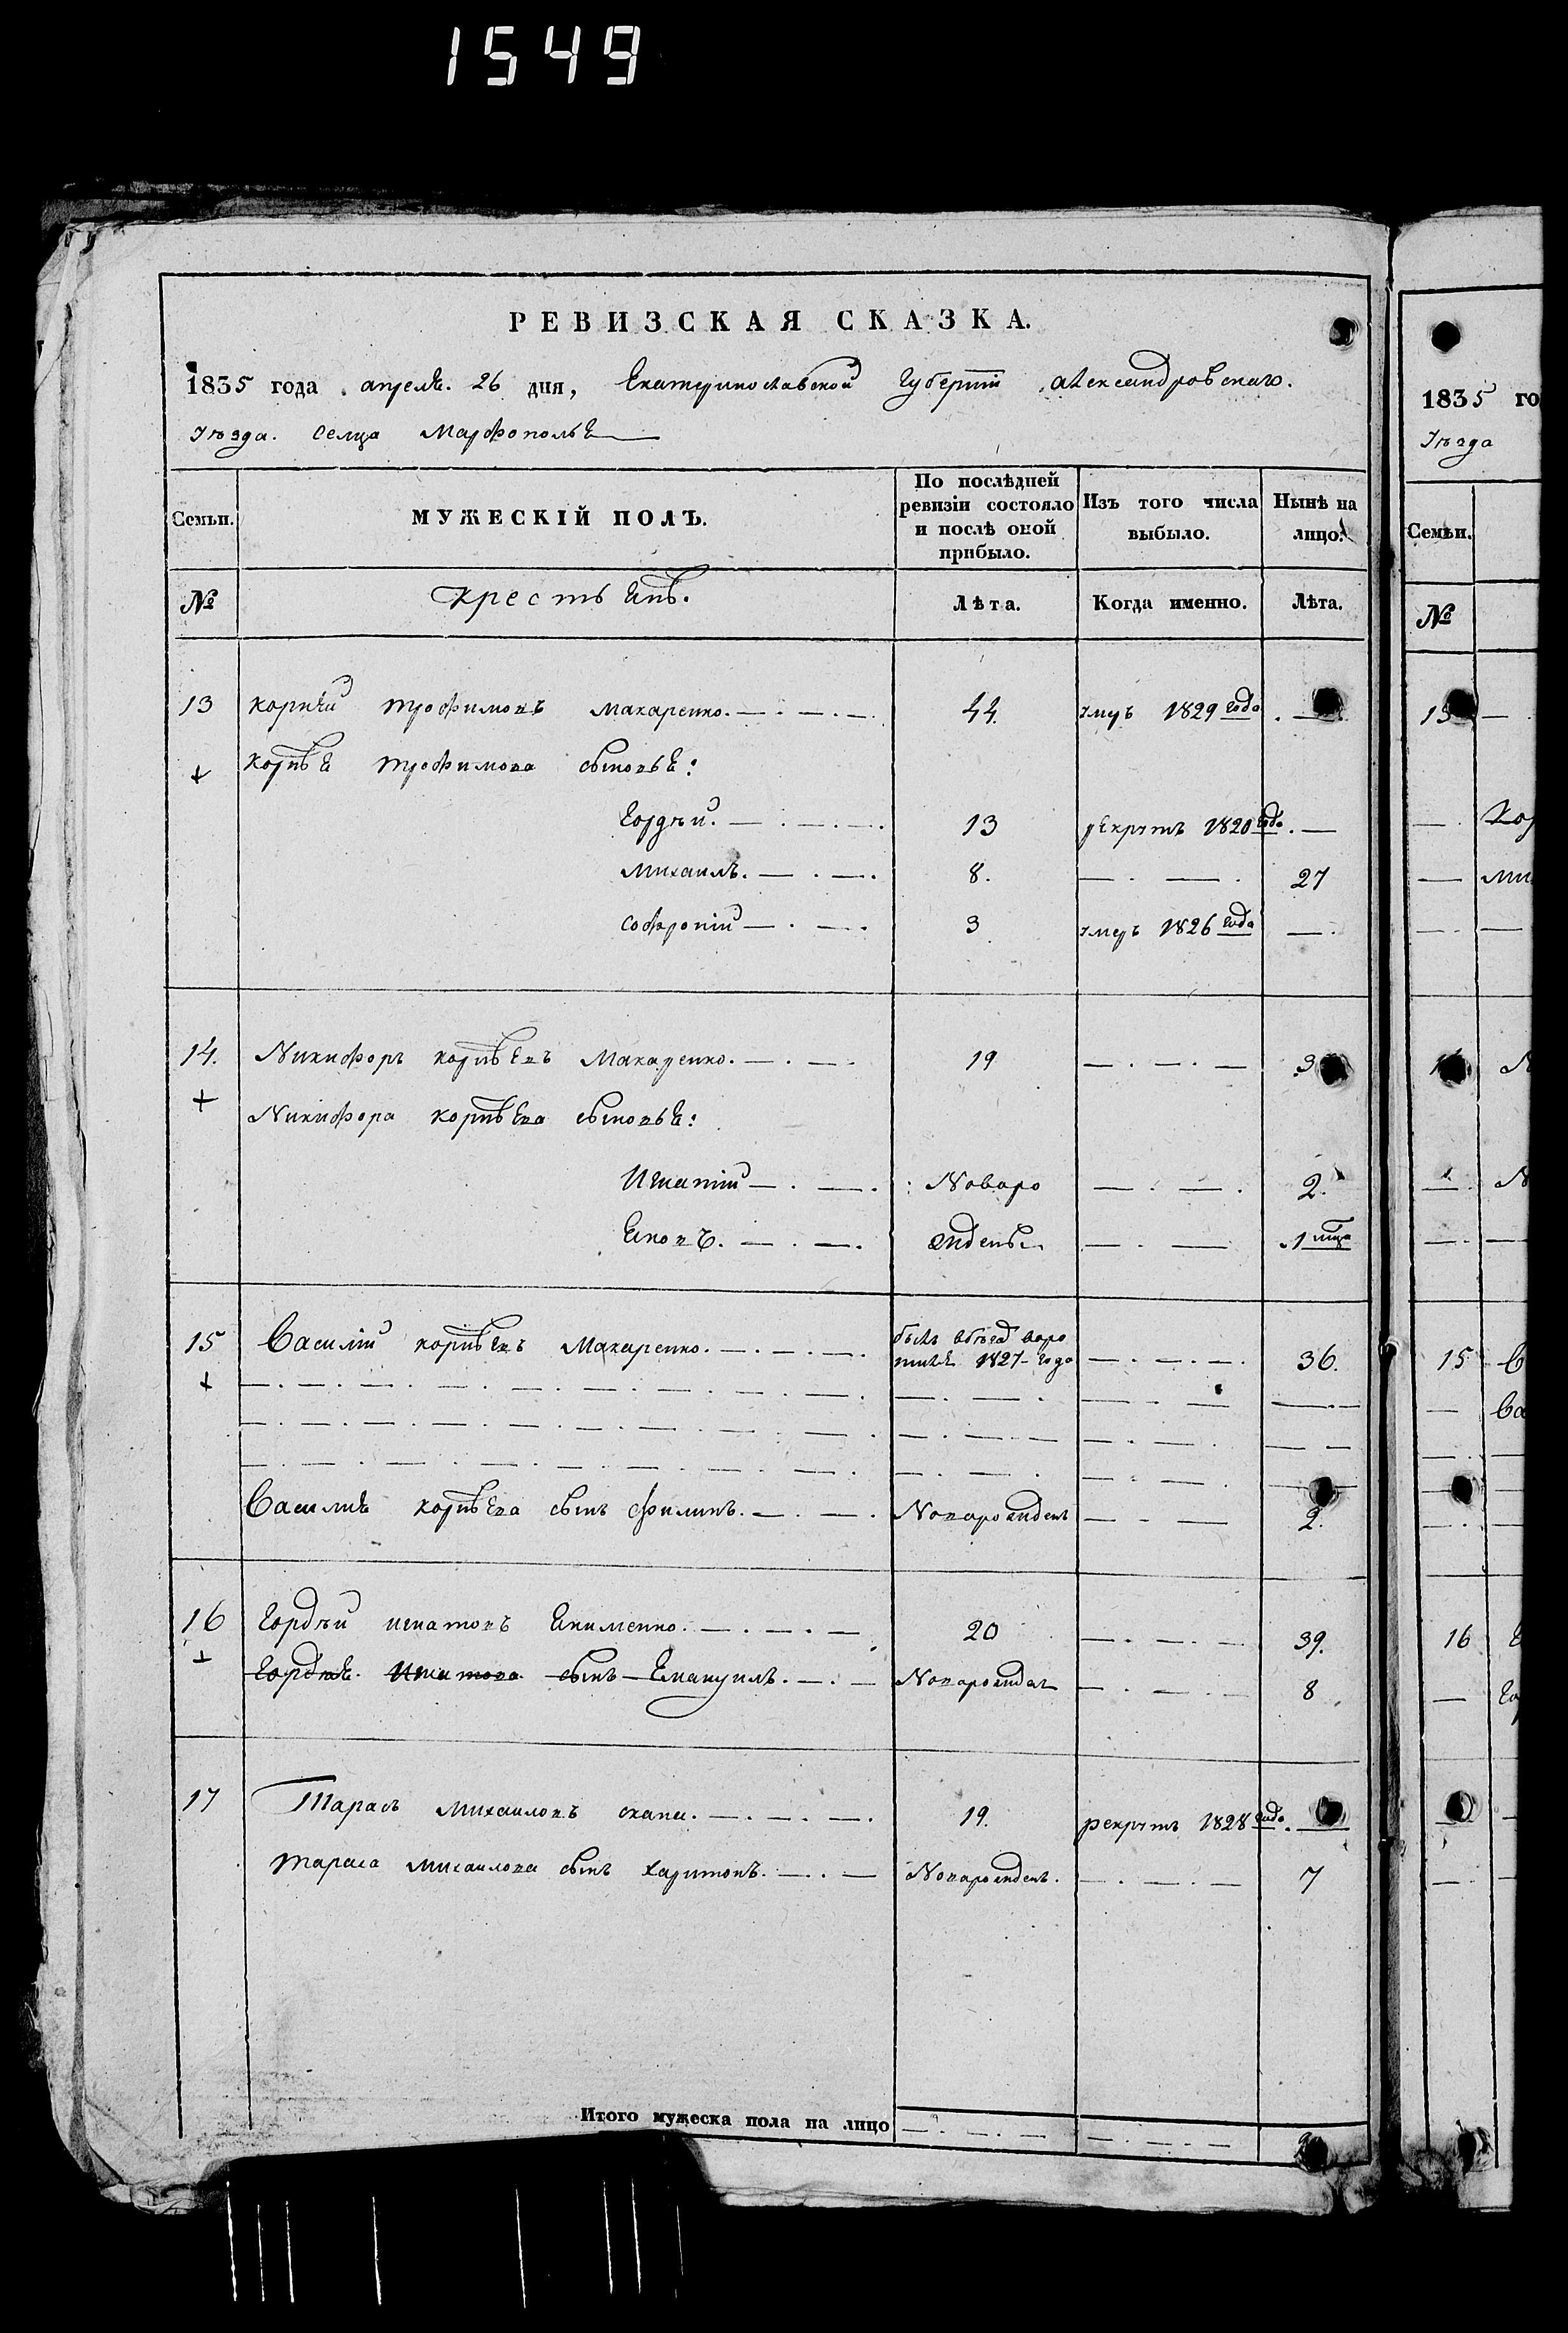 1549
РЕВИЗСКАЯ СКАЗКА.
1835 года апреля. 26 дня, Екатеринославской Губернiи Александровскаго.
Уѣзда. Селца Марфополя
Семьи. МУЖЕСКІЙ ПОЛЪ. По послѣдней ревизіи состояло и послѣ оной прибыло. Изъ того числа выбыло. Нынѣ на лицо.
№ Крестьянъ. Лѣта. Когда именно. Лѣта.
13 Корнѣй Трофимовъ Макаренко. 44. умеръ 1829 года
Корнѣя Трофимова сыновья:
Гордѣй. 13 рекрутъ 1820 года.
Михаилъ. 8. 27
Софроній 3 умеръ 1826 года
14. Никифоръ Корнѣевъ Макаренко. 19 3
Никифора Корнѣева сыновья:
Игнатій Новоро 2.
Яковъ. жденъ 1 мца
15 Василій Корнѣевъ Макаренко. 1827 года 36.
Василия Корнѣева сынъ Филипъ. Новорожденъ 2.
16 Гордѣй Игнатовъ Якименко. 20 39.
Гордѣя Игнатова сынъ Емануилъ. Новорожденъ 8
17 Тарасъ Михаиловъ 19. рекрутъ 1828 года.
Тараса Михаилова сынъ Харитонъ. Новорожденъ. 7
Итого мужеска пола на лицо
1835 го
Уѣзда
Семьи.
№
13
Кор
Ми
15
16